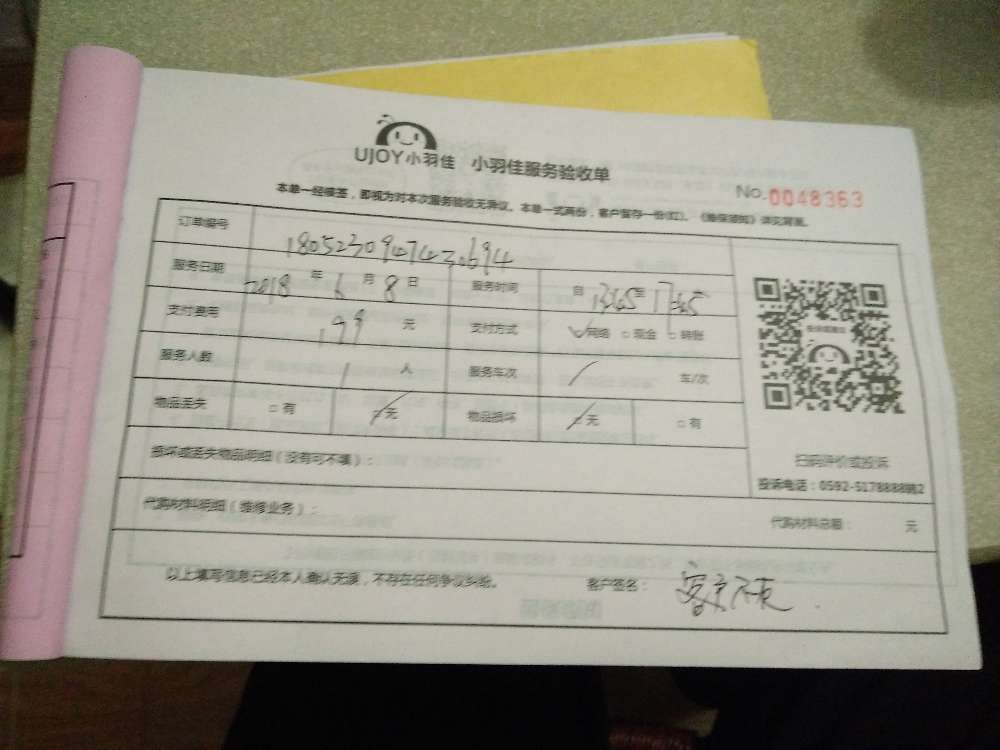 UJOY小羽佳 小羽佳服务验收单
No. 0048363
本单一经签签，即视为对本次服务验收无异议。本单一式两份，客户留存一份(红)。《维保须知》详见背面。
订单编号 1805230947430694
服务日期 2018 年 6 月 8 日 服务时间 自 至
支付费用 199 元 支付方式 网络 □ 现金 □ 转账
服务人数 1 人 服务车次 / 车/次
物品丢失 □ 有 无 物品损坏 无 □ 有
损坏或丢失物品明细（没有可不填）：
扫码评价或投诉
投诉电话：0592-5178888转2
代购材料明细（维修业务）： 代购材料总额： 元
以上填写信息已经本人确认无误，不存在任何争议纠纷。 客户签名： 客户不在